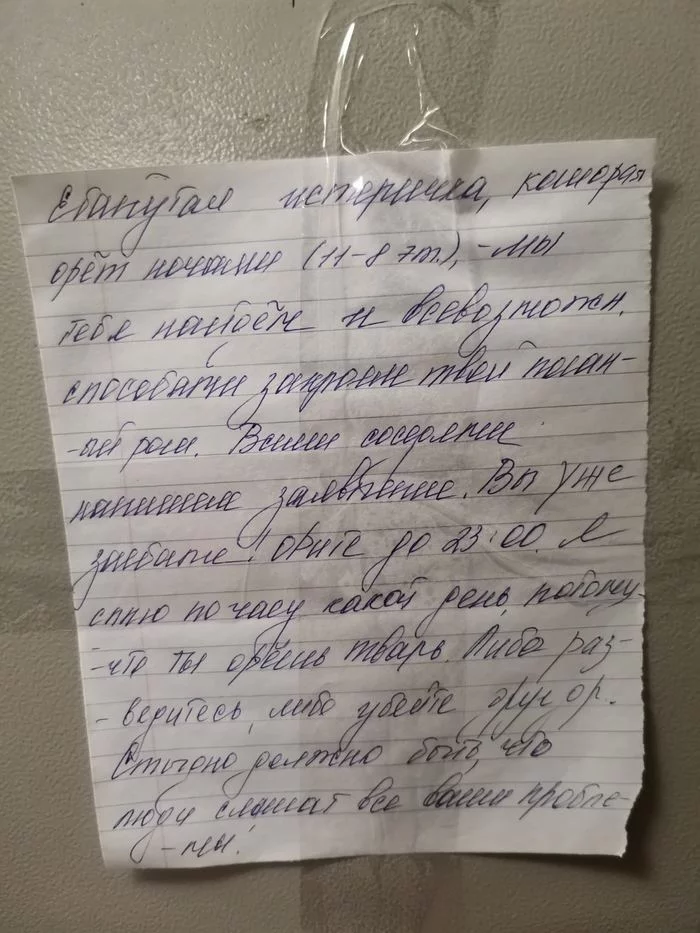 Ебанутая истеричка, которая
орёт ночами (11-8 эт.), -мы
тебя найдём и всевозможн.
способами закроем твой поган-
-ый рот. Всеми соседями
напишем заявление. Вы уже
заебали! Орите до 23:00. Я
сплю по часу какой день, потому-
-что ты орёшь тварь. Либо раз-
- ведитесь, либо убейте друг др.
Стыдно должно быть, что
люди слышат все ваши пробле-
-мы!